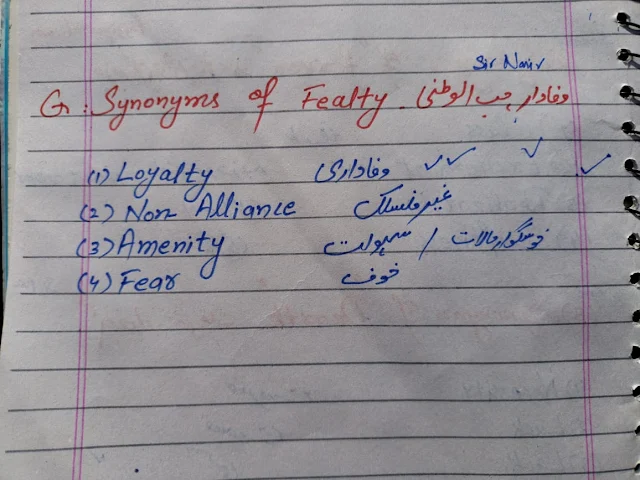 Sir Nasir
G: Synonyms of Fealty. وفادار، حب الوطنی
(1) Loyalty وفاداری ✓✓ ✓ ✓
(2) Non Alliance غیر منسلک
(3) Amenity سہولت / خوشگوار حالات
(4) Fear خوف